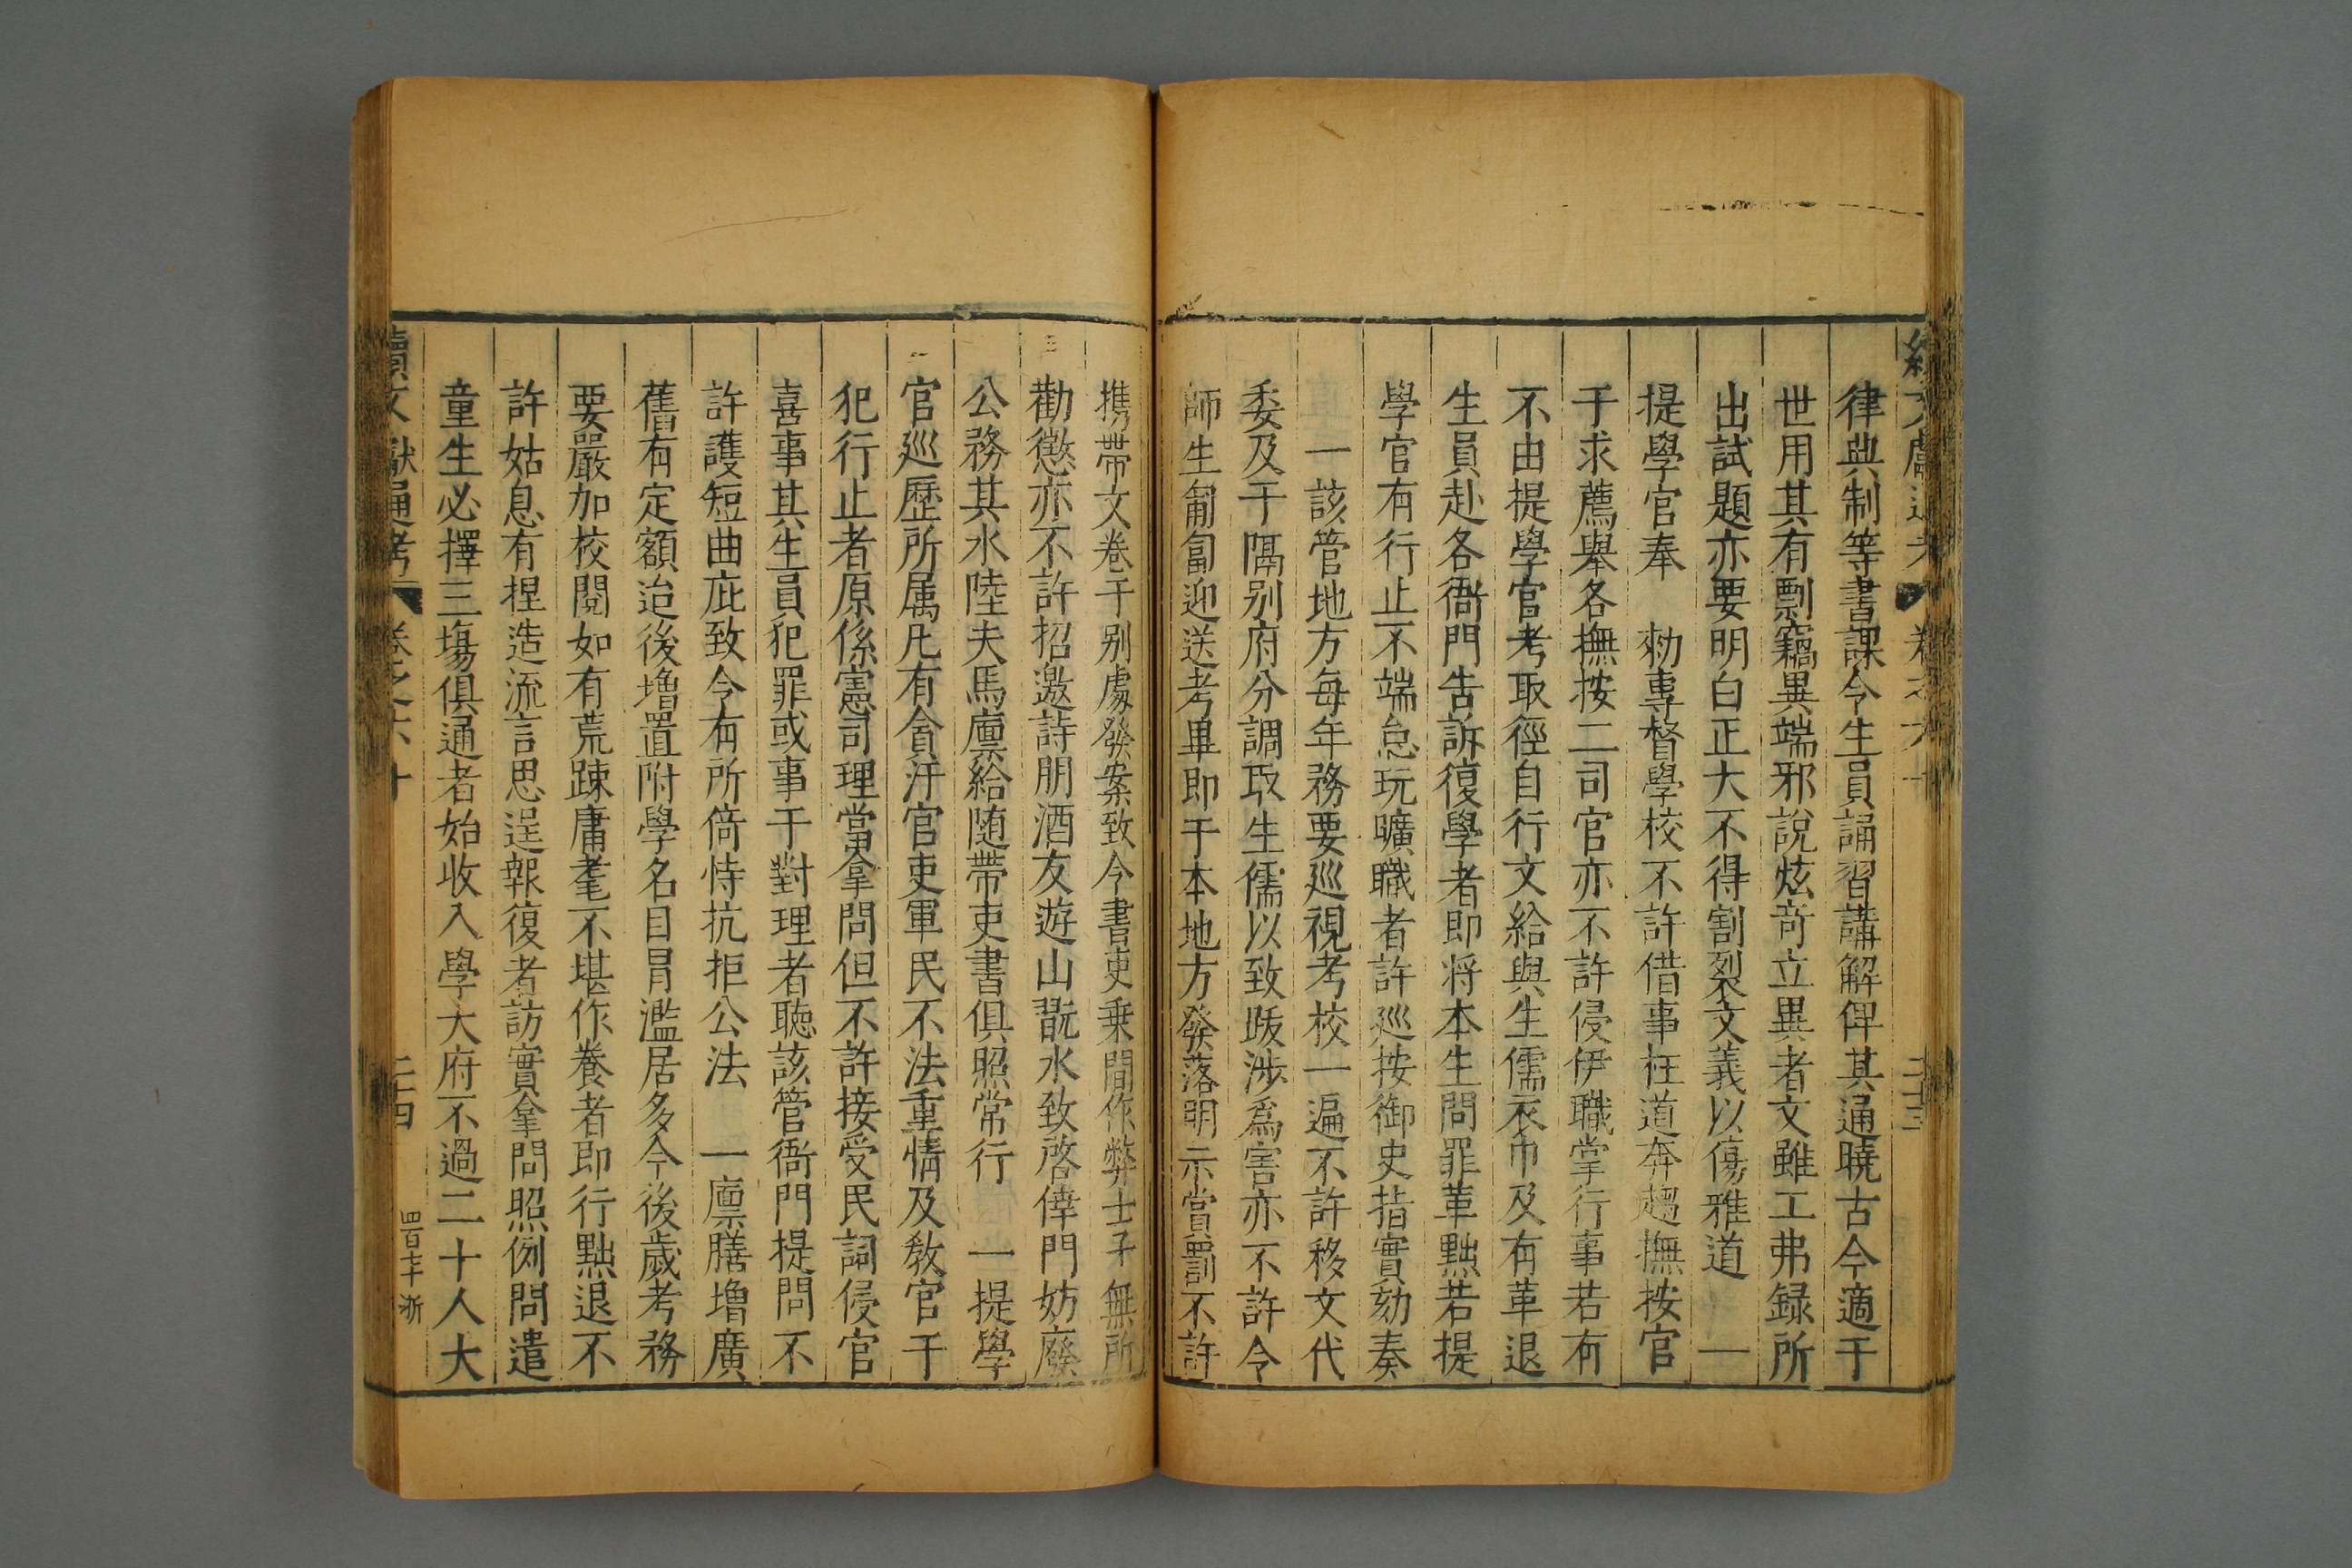 續文獻通考 卷之六十 二十三
律典制等書課令生員誦習講解俾其通曉古今適于
世用其有剽竊異端邪說炫奇立異者文雖工弗録所
出試題亦要明白正大不得割裂文義以傷雅道 一
提學官奉 勑專督學校不許借事枉道奔趨撫按官
干求薦舉各撫按二司官亦不許侵伊職掌行事若有
不由提學官考取徑自行文給與生儒衣巾及有革退
生員赴各衙門告訴復學者即将本生問罪革黜若提
學官有行止不端怠玩曠職者許巡按御史指實劾奏
一該管地方每年務要巡視考校一遍不許移文代
委及于隅别府分調取生儒以致跋涉爲害亦不許令
師生匍匐迎送考畢即于本地方發落明示賞罰不許
携帶文卷于别處發案致令書吏乗間作弊士子無所
勸懲亦不許招邀詩朋酒友遊山翫水致啓倖門妨廢
公務其水陸夫馬廪給随帶吏書俱照常行 一提學
官巡歷所属凡有貪汙官吏軍民不法重情及教官干
犯行止者原係憲司理當拿問但不許接受民詞侵官
喜事其生員犯罪或事干對理者聴該管衙門提問不
許護短曲庇致令有所倚恃抗拒公法 一廪膳増廣
舊有定額迨後増置附學名目冒濫居多今後歲考務
要嚴加校閱如有荒踈庸耄不堪作養者即行黜退不
許姑息有捏造流言思逞報復者訪實拿問照例問遣
童生必擇三塲俱通者始收入學大府不過二十人大
續文獻通考 卷之六十 二十四